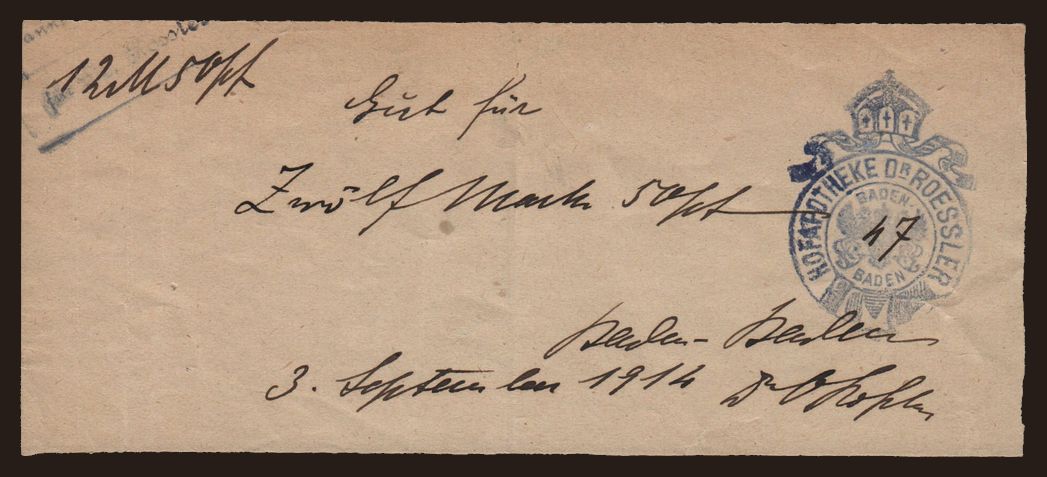 12 M 50 pf
Gut für
Zwölf Mark 50 pf
HOFAPOTHEKE DR ROESSLER
BADEN
47
BADEN
Baden-Baden
3. September 1914
Dr